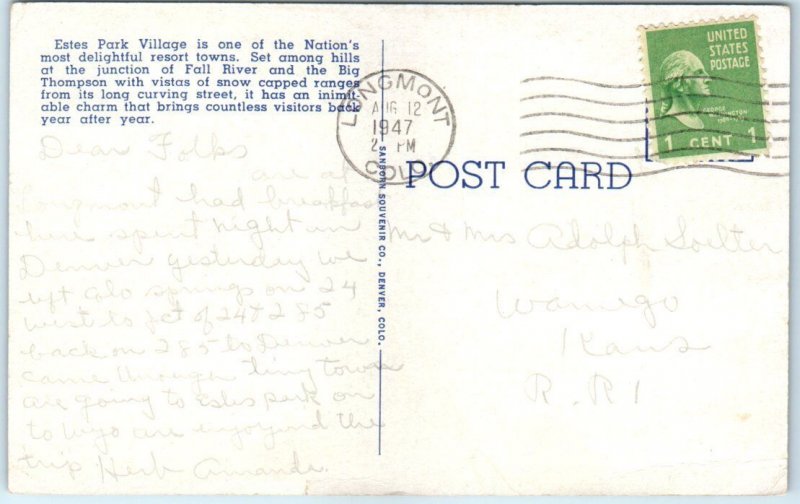 Estes Park Village is one of the Nation's
most delightful resort towns. Set among hills
at the junction of Fall River and the Big
Thompson with vistas of snow capped ranges
from its long curving street, it has an inimit-
able charm that brings countless visitors back
year after year.
Dear Folks
are at
Longmont had breakfast
here spent night in
Denver yesterday we
left Colo springs on 24
west to jct of 24 & 285
back on 285 to Denver
came through tiny town
are going to estes park on
to Wyo are enjoying the
trip Herb Amanda.
SANBORN SOUVENIR CO., DENVER, COLO.
LONGMONT
AUG 12
1947
2 PM
COLO.
UNITED
STATES
POSTAGE
GEORGE
WASHINGTON
1 CENT 1
POST CARD
Mr & Mrs Adolph Soelter
Wamego
Kans
R.R 1